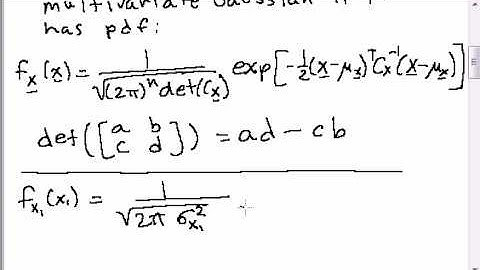 multivariate Gaussian if
has pdf:
f_x(x) = 1/√((2π)^n det(C_x)) exp[-1/2(x-μ_x)^T C_x^-1(x-μ_x)]
det([a b; c d]) = ad - cb
f_x₁(x₁) = 1/√(2π σ_x₁²)